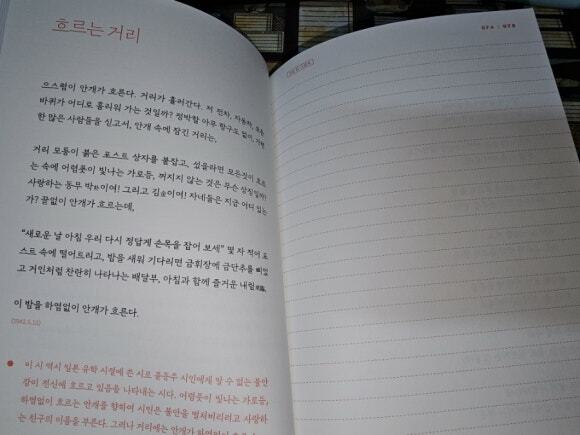 흐르는 거리
으스럼이 안개가 흐른다. 거리가 흘러간다. 저 전차, 자동차, 모든
바퀴가 어디로 흘리워 가는 것일까? 정박할 아무 항구도 없이, 가련
한 많은 사람들을 싣고서, 안개 속에 잠긴 거리는,
거리 모퉁이 붉은 포스트 상자를 붙잡고, 섰을라면 모든것이 흐르
는 속에 어렴풋이 빛나는 가로등, 꺼지지 않는 것은 무슨 상징일까?
사랑하는 동무 박이여! 그리고 김이여! 자네들은 지금 어디 있는
가? 끝없이 안개가 흐르는데,
“새로운 날 아침 우리 다시 정답게 손목을 잡어 보세” 몇 자 적어 포
스트 속에 떨어트리고, 밤을 새워 기다리면 금휘장에 금단추를 삐었
고 거인처럼 찬란히 나타나는 배달부, 아침과 함께 즐거운 내림
이 밤을 하염없이 안개가 흐른다.
(1942.5.12)
● 이 시 역시 일본 유학 시절에 쓴 시로 윤동주 시인에게 알 수 없는 불안
감이 전신에 흐르고 있음을 나타내는 시다. 어렴풋이 빛나는 가로등,
하염없이 흐르는 안개를 향하여 시인은 불안을 떨쳐버리려고 사랑하
는 친구의 이름을 부른다. 그러나 거리에는 안개가 하염없이